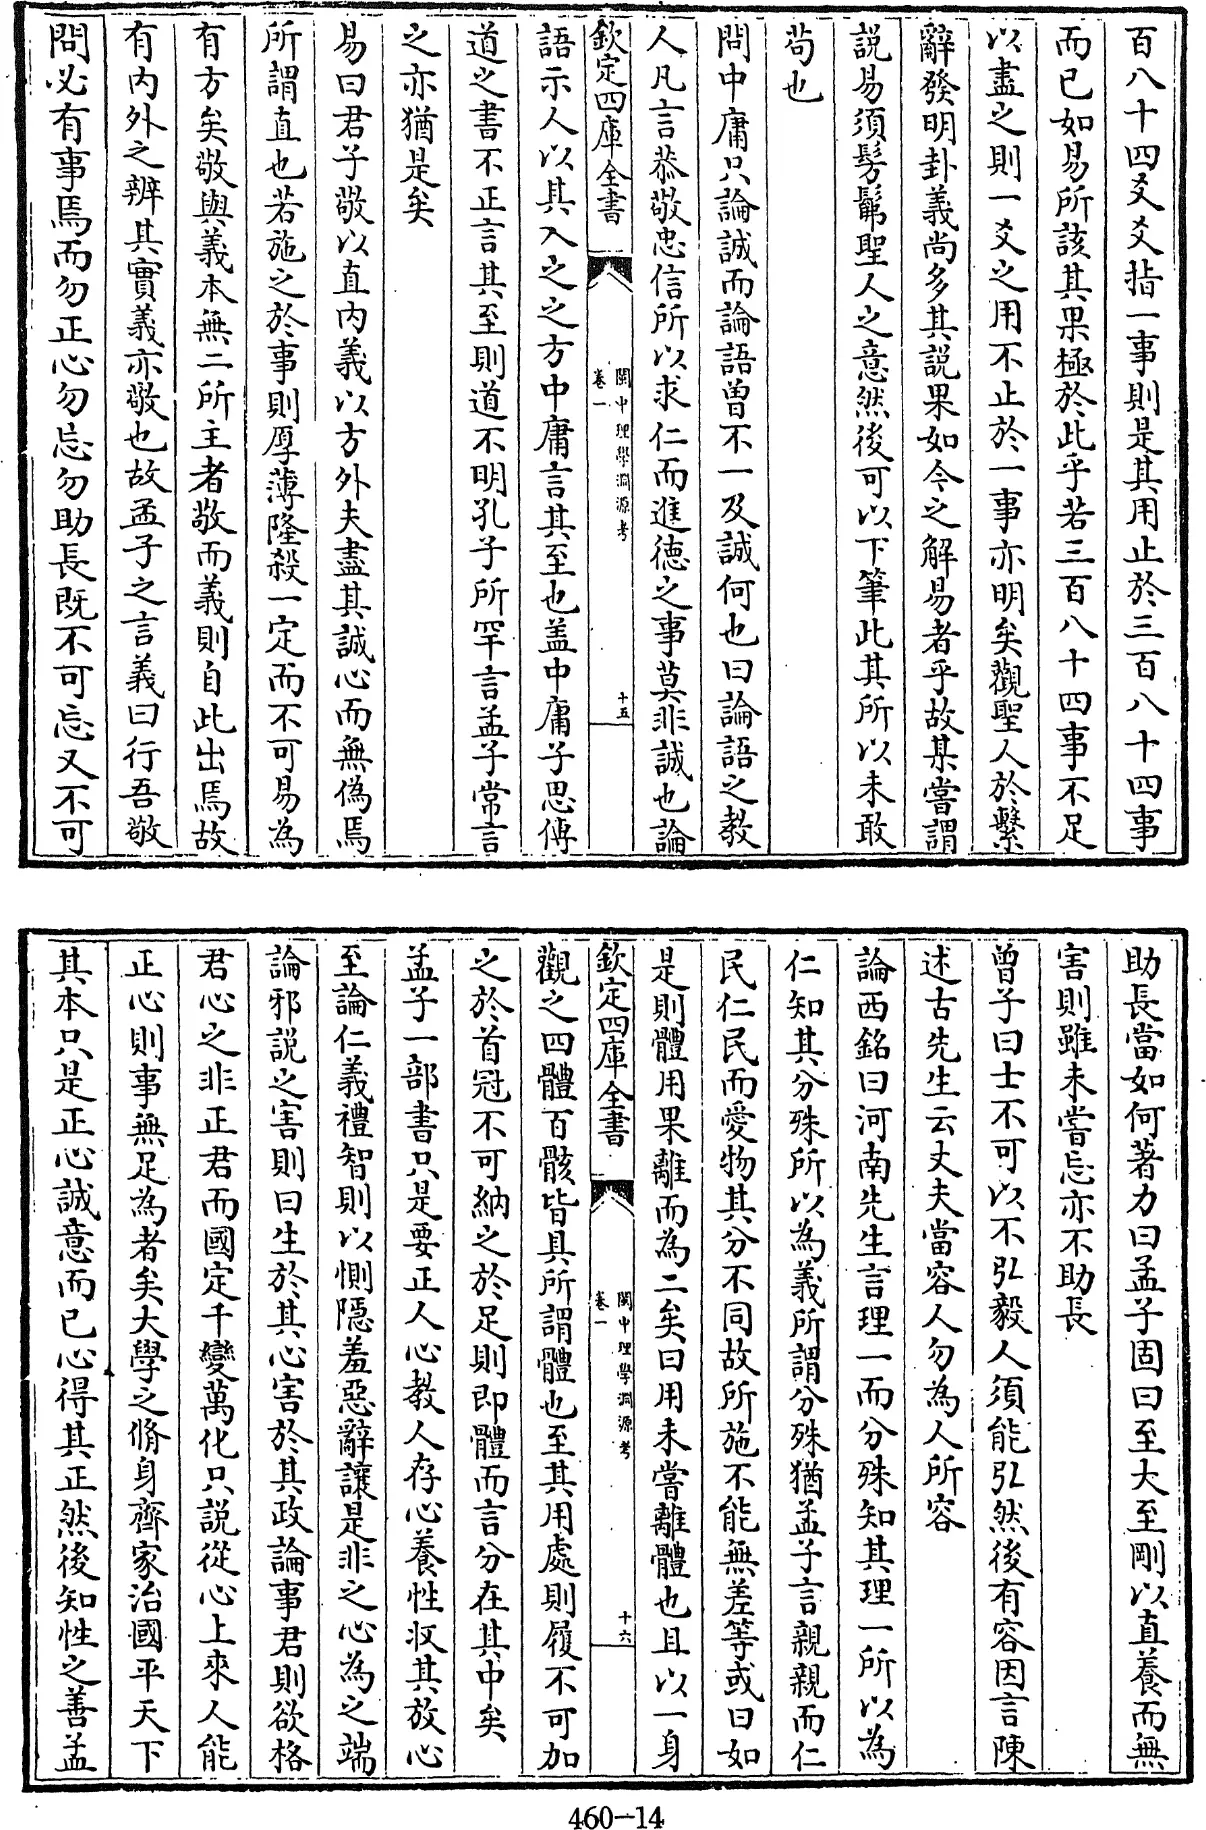 百八十四爻爻指一事則是其用止於三百八十四事
而已如易所該其果極於此乎若三百八十四事不足
以盡之則一爻之用不止於一事亦明矣觀聖人於繫
辭發明卦義尚多其説果如今之解易者乎故某嘗謂
説易須髣髴聖人之意然後可以下筆此其所以未敢
苟也
問中庸只論誠而論語曽不一及誠何也曰論語之教
人凡言恭敬忠信所以求仁而進徳之事莫非誠也論
欽定四庫全書
閩中理學淵源考
卷一
十五
語示人以其入之之方中庸言其至也盖中庸子思傳
道之書不正言其至則道不明孔子所罕言孟子常言
之亦猶是矣
易曰君子敬以直内義以方外夫盡其誠心而無偽焉
所謂直也若施之於事則厚薄隆殺一定而不可易為
有方矣敬與義本無二所主者敬而義則自此出焉故
有内外之辨其實義亦敬也故孟子之言義曰行吾敬
問必有事焉而勿正心勿忘勿助長既不可忘又不可
助長當如何著力曰孟子固曰至大至剛以直養而無
害則雖未嘗忘亦不助長
曾子曰士不可以不弘毅人須能弘然後有容因言陳
述古先生云丈夫當容人勿為人所容
論西銘曰河南先生言理一而分殊知其理一所以為
仁知其分殊所以為義所謂分殊猶孟子言親親而仁
民仁民而愛物其分不同故所施不能無差等或曰如
是則體用果離而為二矣曰用未嘗離體也且以一身
欽定四庫全書
閩中理學淵源考
卷一
十六
觀之四體百骸皆具所謂體也至其用處則履不可加
之於首冠不可納之於足則即體而言分在其中矣
孟子一部書只是要正人心教人存心養性收其放心
至論仁義禮智則以惻隠羞惡辭讓是非之心為之端
論邪説之害則曰生於其心害於其政論事君則欲格
君心之非正君而國定千變萬化只説從心上來人能
正心則事無足為者矣大學之脩身齊家治國平天下
其本只是正心誠意而已心得其正然後知性之善孟
460-14